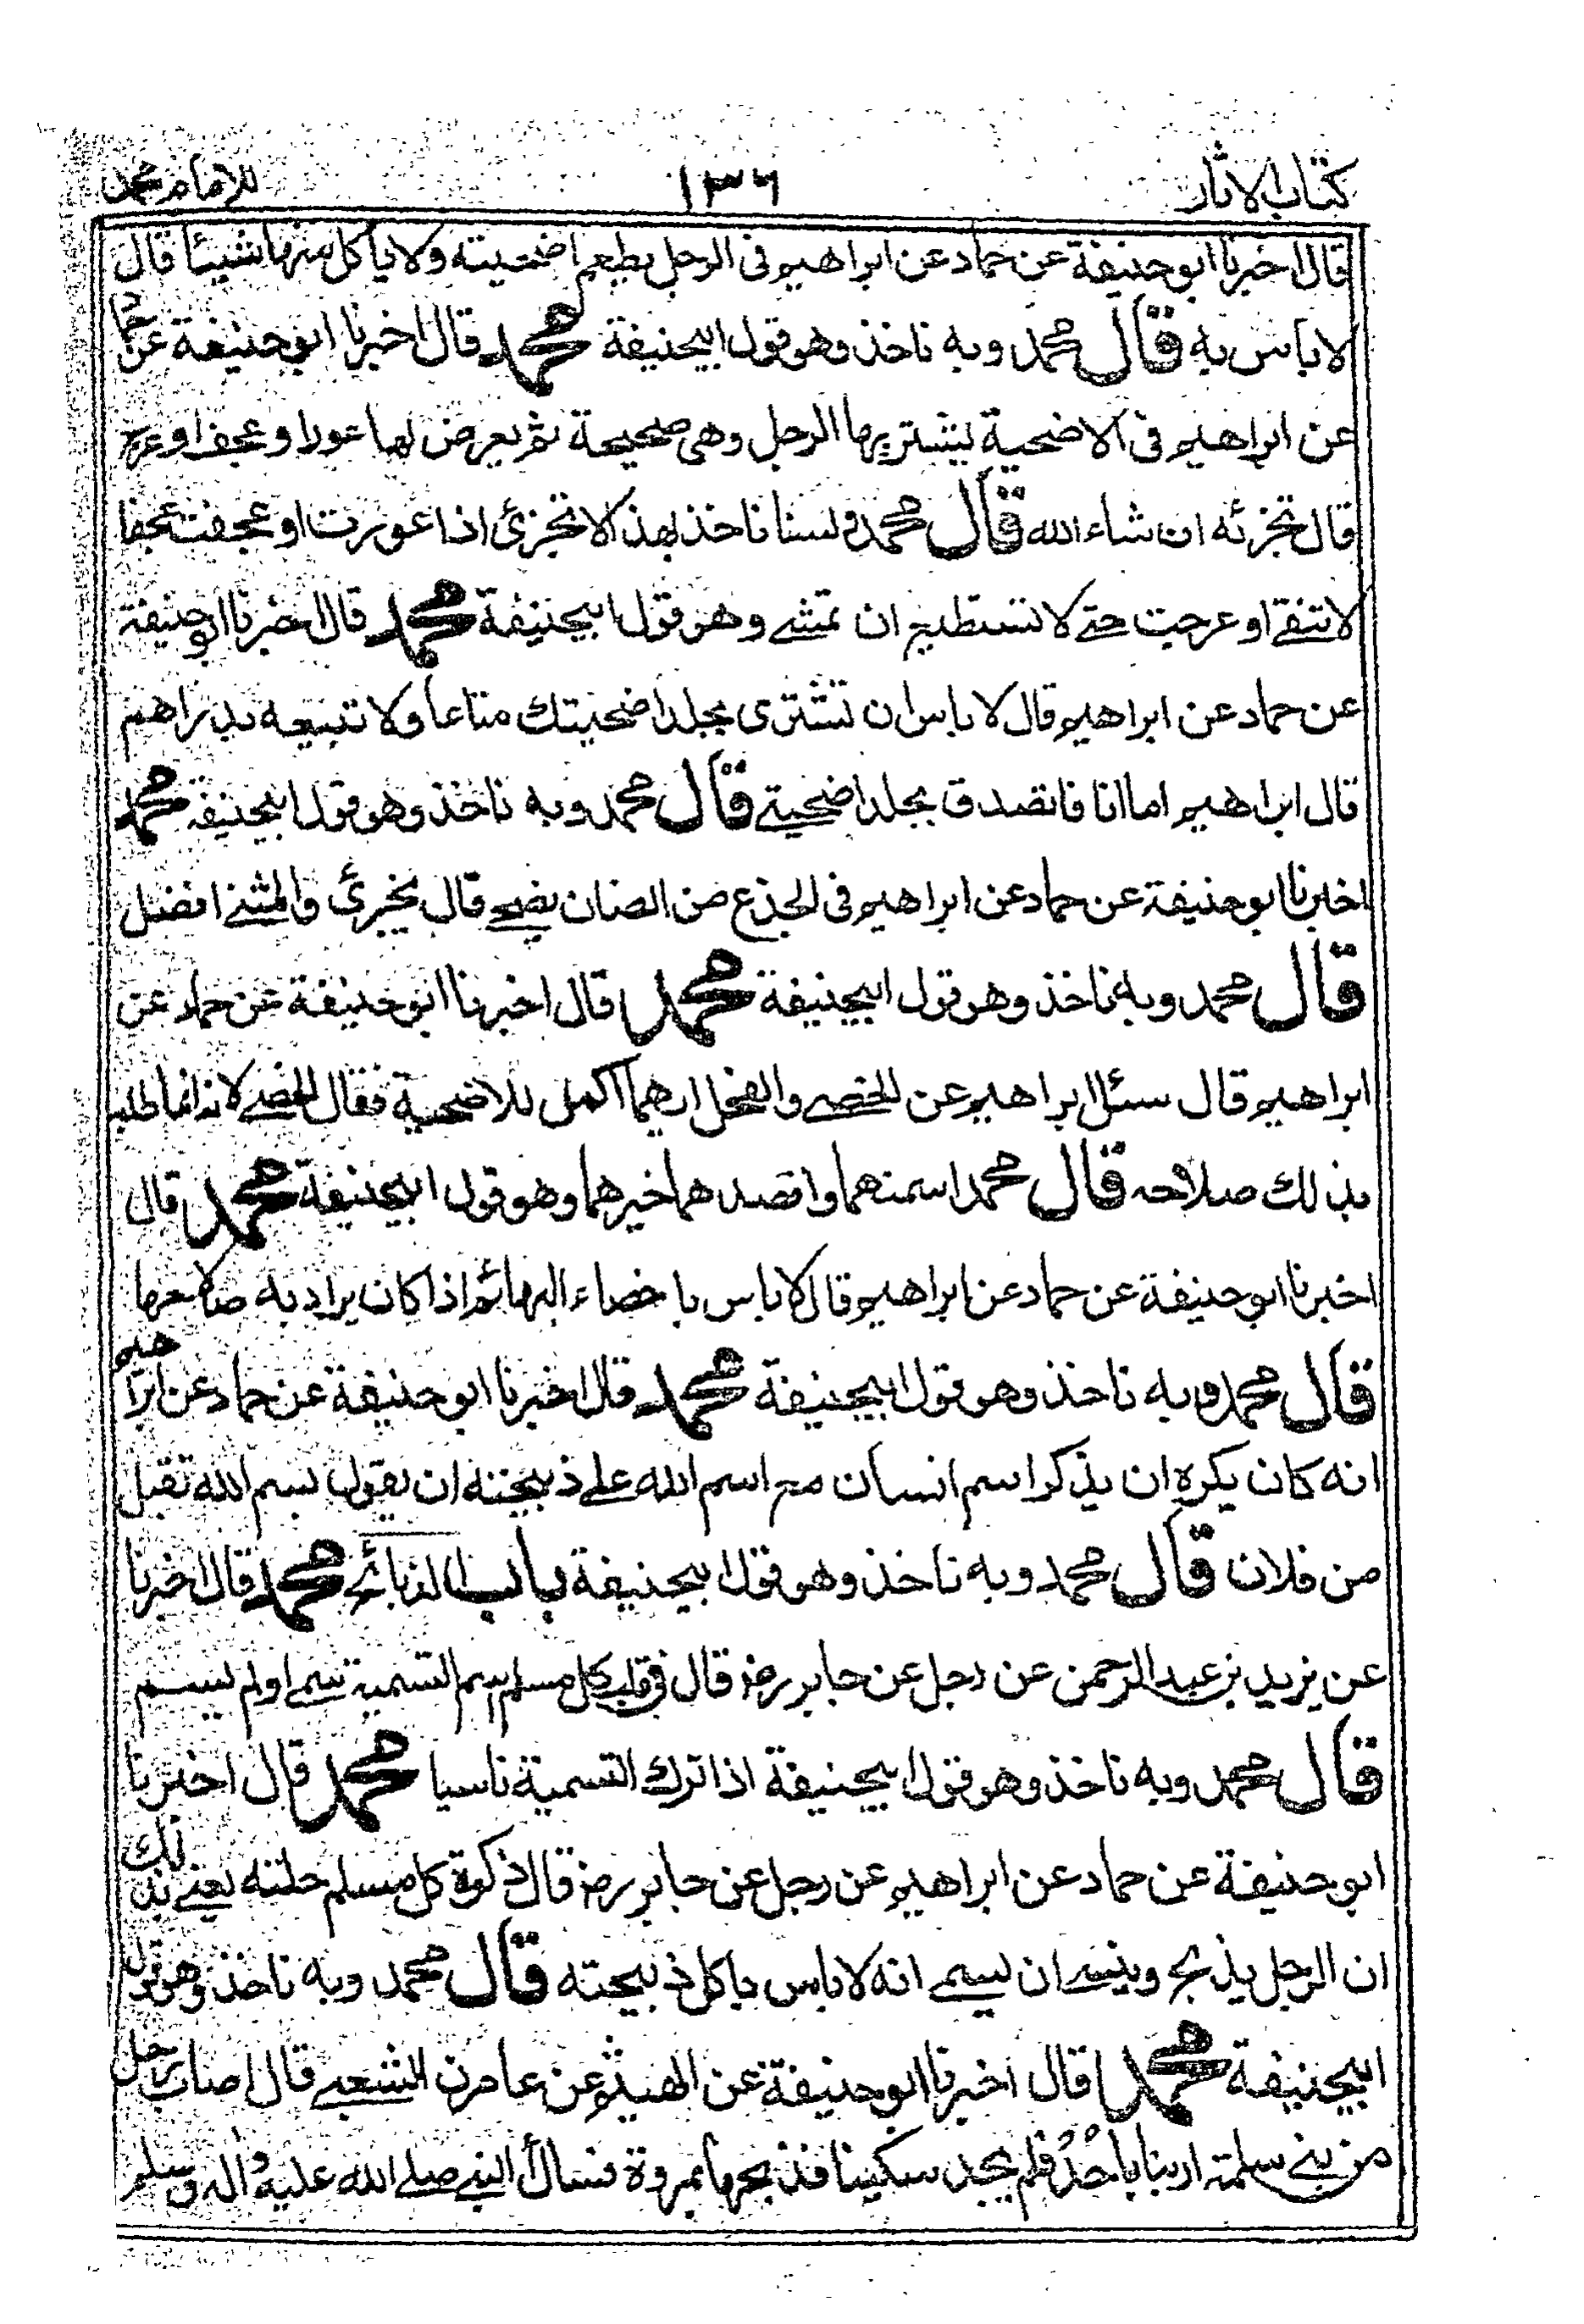 كتاب الاثار ١٣٦ للامام محمد
قال اخبرنا ابو حنيفة عن حماد عن ابراهيم فى الرجل يطعم اضحيته ولا ياكل منها شيئا قال
لا باس به قال محمد وبه ناخذ وهو قول ابيحنيفة محمد قال اخبرنا ابو حنيفة عن حماد
عن ابراهيم فى الاضحية يشتريها الرجل وهى صحيحة ثم يعرض لها عور او عجف او عرج
قال تجزئه ان شاء الله قال محمد ولسنا ناخذ بهذا لا تجزئ اذا عورت او عجفت عجفا
لا تنقى او عرجت حتى لا تستطيع ان تمشے وهو قول ابيحنيفة محمد قال اخبرنا ابو حنيفة
عن حماد عن ابراهيم قال لا باس ان تشترى بجلد اضحيتك متاعا ولا تبيعه بدراهم
قال ابراهيم اما انا فاتصدق بجلد اضحيتے قال محمد وبه ناخذ وهو قول ابيحنيفة محمد
اخبرنا ابو حنيفة عن حماد عن ابراهيم فى الجذع من الضان يضحے قال يجزئ والمثنے افضل
قال محمد وبه ناخذ وهو قول ابيحنيفة محمد قال اخبرنا ابو حنيفة عن حماد عن
ابراهيم قال سئل ابراهيم عن الخصے والفحل ايهما اكمل للاضحية فقال الخصے لانه انما طلب
بذلك صلاحه قال محمد اسمنهما واقصدهما خيرهما وهو قول ابيحنيفة محمد قال
اخبرنا ابو حنيفة عن حماد عن ابراهيم قال لا باس باخصاء البهائم اذا كان يراد به صلاحها
قال محمد وبه ناخذ وهو قول ابيحنيفة محمد قال اخبرنا ابو حنيفة عن حماد عن ابراهيم
انه كان يكره ان يذكر اسم انسان مع اسم الله علے ذبيحته ان يقول بسم الله تقبل
من فلان قال محمد وبه ناخذ وهو قول ابيحنيفة باب الذبائح محمد قال اخبرنا
عن يزيد بن عبد الرحمن عن رجل عن جابر رضـ قال فى قلب كل مسلم اسم التسمية سمے او لم يسم
قال محمد وبه ناخذ وهو قول ابيحنيفة اذا ترك التسمية ناسيا محمد قال اخبرنا
ابو حنيفة عن حماد عن ابراهيم عن رجل عن جابر رضـ قال ذكوة كل مسلم حلته يعنے بذلك
ان الرجل يذبح وينسے ان يسمے انه لا باس باكل ذبيحته قال محمد وبه ناخذ وهو قول
ابيحنيفة محمد قال اخبرنا ابو حنيفة عن الهيثم عن عامر ن الشعبے قال اصاب رجل
من بنے سلمة ارنبا باحد فلم يجد سكينا فذبحها بمروة فسال النبے صلے الله عليه واله وسلم